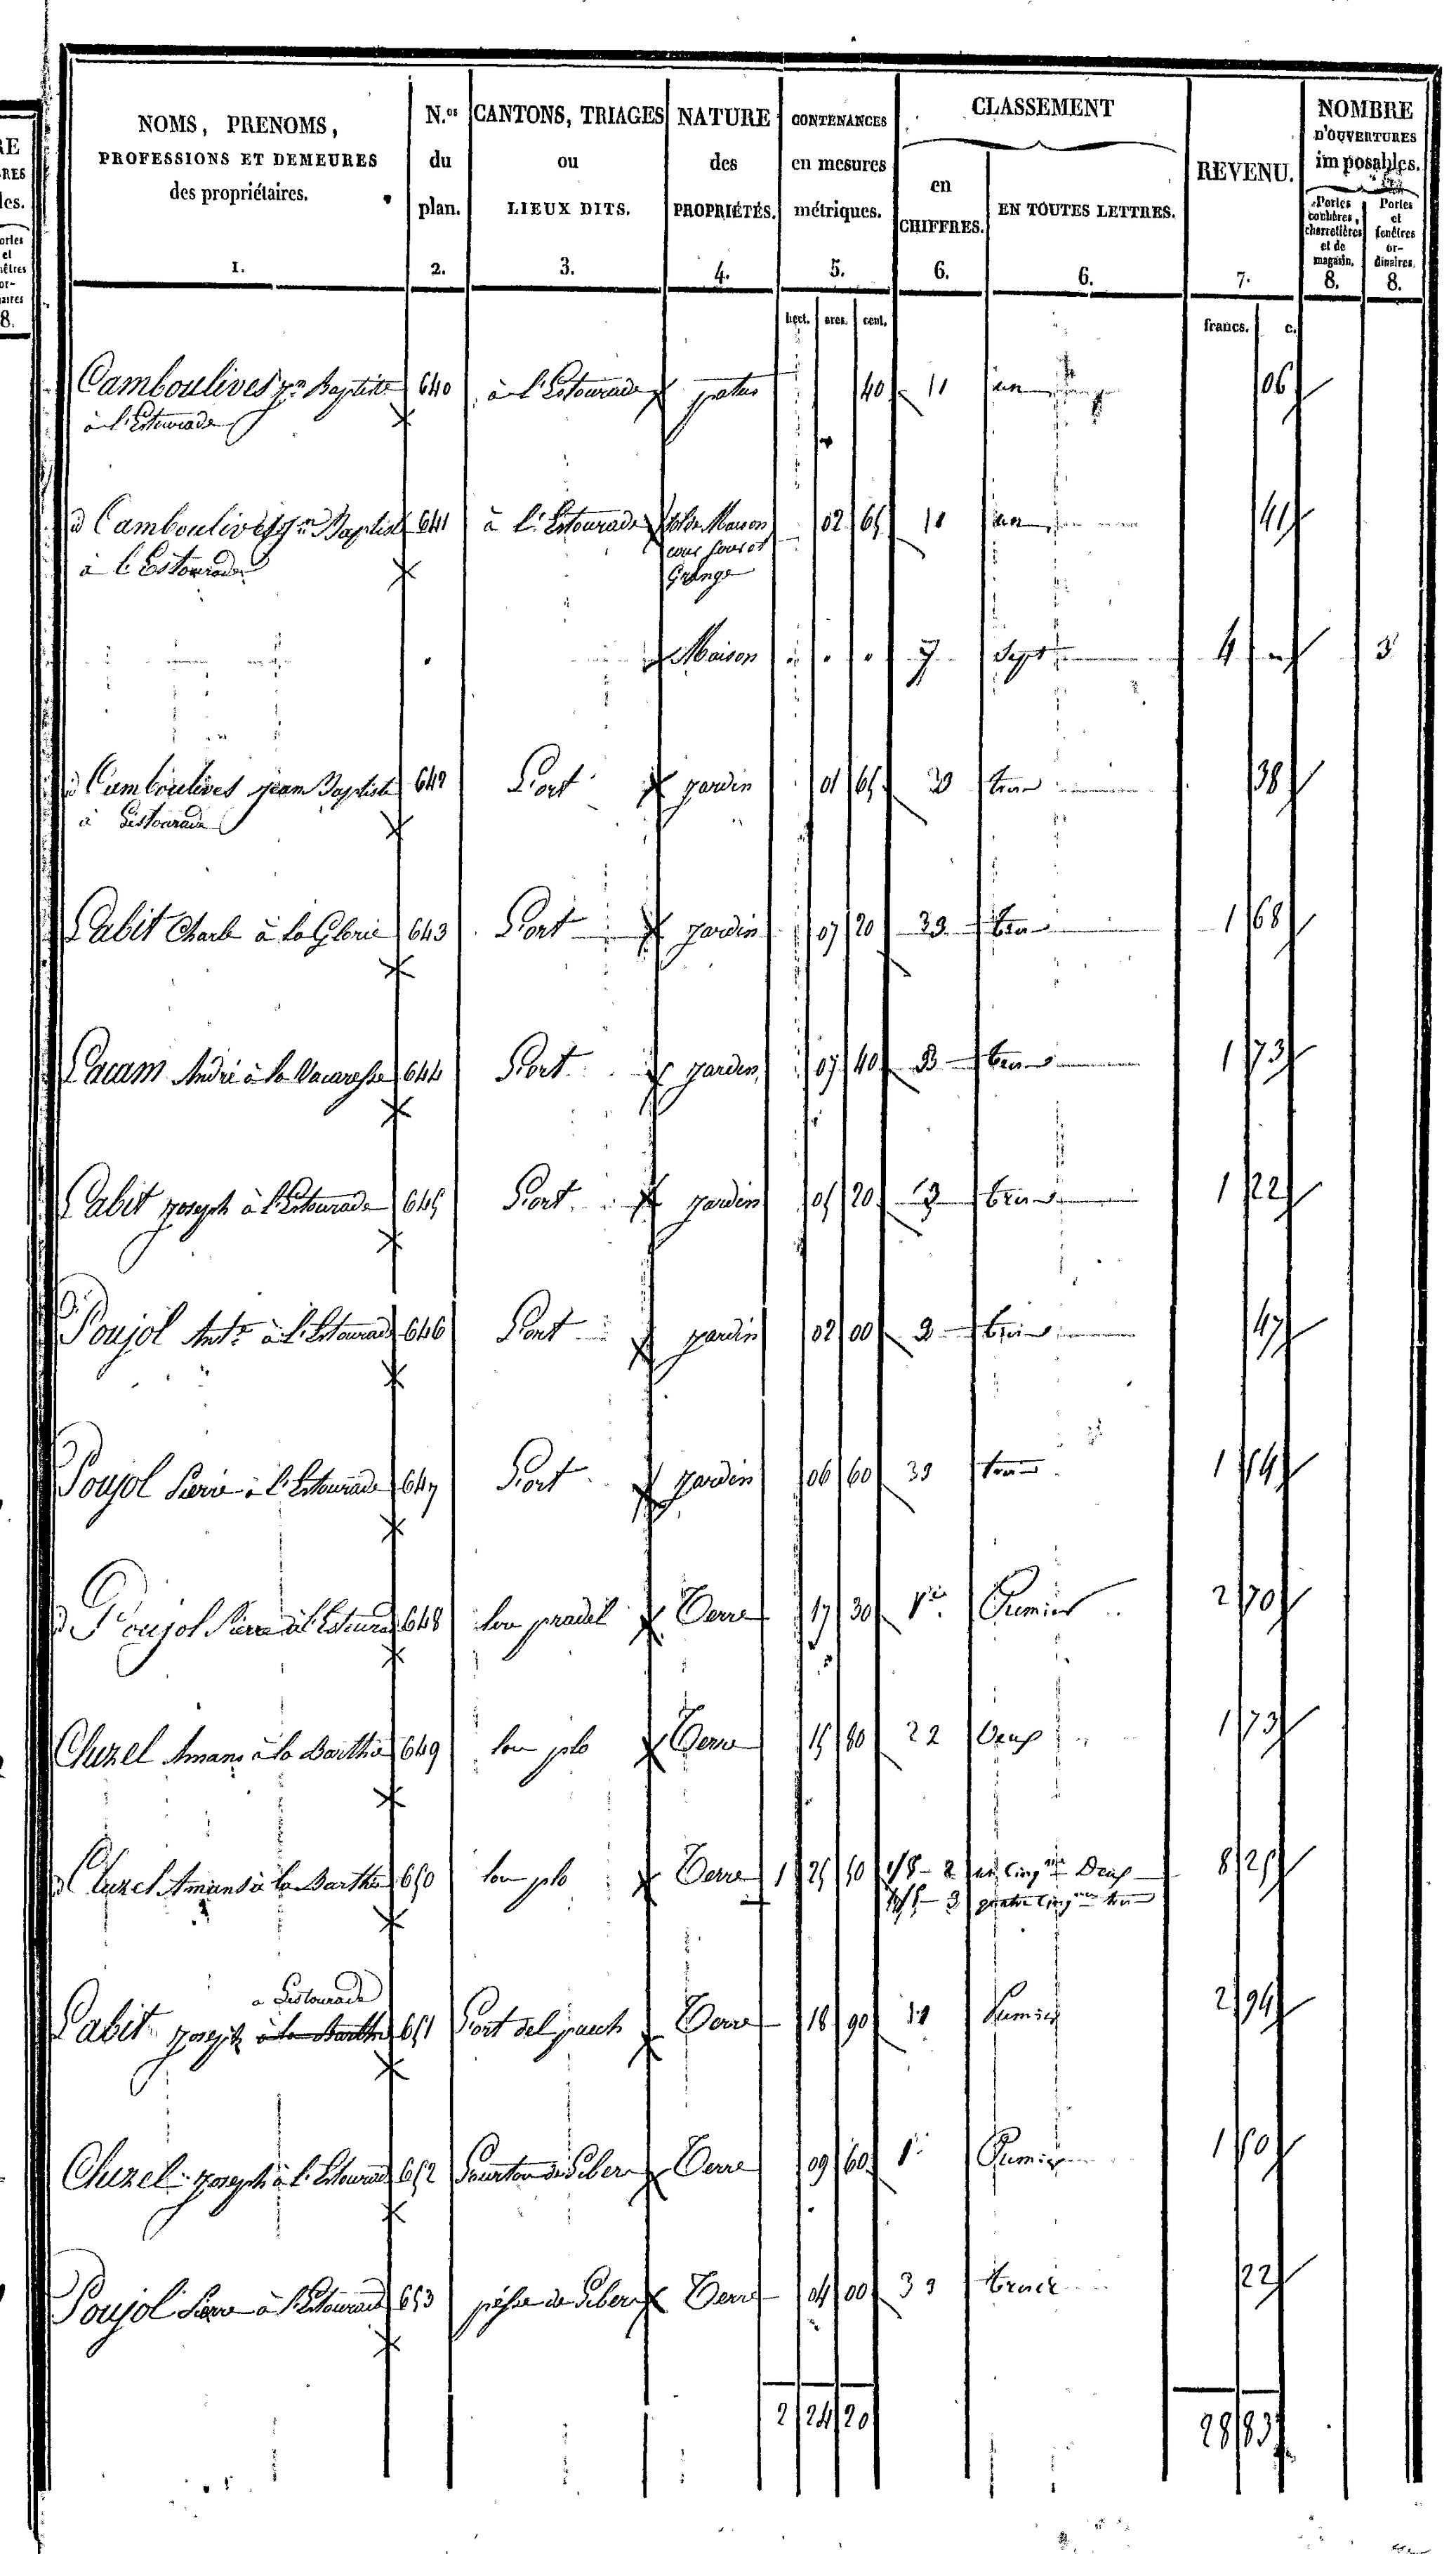 NOMS, PRENOMS, PROFESSIONS ET DEMEURES des propriétaires. 1.
N.os du plan. 2.
CANTONS, TRIAGES ou LIEUX DITS. 3.
NATURE des PROPRIÉTÉS. 4.
CONTENANCES en mesures métriques. 5.
CLASSEMENT
en CHIFFRES. 6.
EN TOUTES LETTRES. 6.
REVENU. 7.
NOMBRE D'OUVERTURES imposables.
Portes cochères, charretières et de magasin. 8.
Portes et fenêtres ordinaires. 8.
hect. ares. cent. francs. c.
Camboulives Jn Baptiste 640 à l'Estourade patus 40 11 un 06
à l'Estourade
d Camboulives Jn Baptiste 641 à l'Estourade Sol de Maison 02 65 10 un 41
à l'Estourade cour four et
Grange
Maison 7 Sept 4 3
d Camboulives Jean Baptiste 642 Lort jardin 01 65 3 trois 38
à Lestourade
Labit Charle à la Glorie 643 Lort jardin 07 20 33 trois 1 68
Lacam André à la Vacaresse 644 Lort jardin 07 40 3 trois 1 73
Labit Joseph à l'Estourade 645 Lort jardin 05 20 3 trois 1 22
Poujol Ante à l'Estourade 646 Lort jardin 02 00 3 trois 47
Poujol Pierre à l'Estourade 647 Lort jardin 06 60 33 trois 1 54
d Poujol Pierre à l'Estourade 648 lou pradel Terre 17 30 1re Premier 2 70
Cluzel Amans à la Barthe 649 lou plo Terre 15 80 22 Deux 1 73
d Cluzel Amans à la Barthe 650 lou plo Terre 1 25 50 1/5 2 un cinqme Deux 8 25
4/5 3 quatre cinqmes trois
a Lestourade
Labit Joseph à la Barthe 651 Lort del puech Terre 18 90 Premier 2 94
Cluzel Joseph à l'Estourade 652 Terre 09 60 1re Premier 1 50
Poujol Pierre à l'Estourade 653 Terre 04 00 33 22
2 24 20 28 83